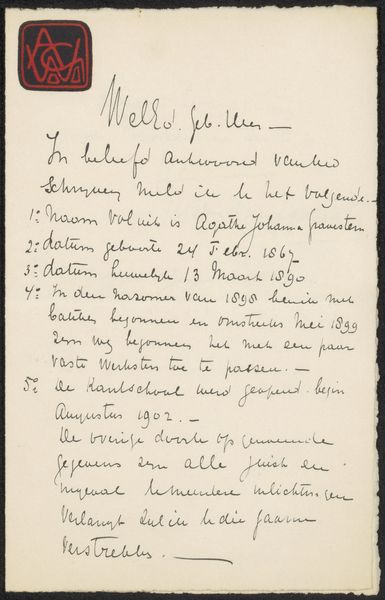 WelEd. Geb. Heer —
In beleefd antwoord van Uw
schrijven meld ik U het volgende. —
1º Naam voluit is Agathe Johanna Gravestein
2º datum geboorte 24 Febr. 1867
3º datum huwelijk 13 Maart 1890
4º In den nazomer van 1898 ben ik met
batikken begonnen en omstreeks Mei 1899
zijn wij begonnen het met een paar
vaste werksters toe te passen. —
5º De Kantschool werd geopend begin
Augustus 1902. —
De overige door U opgenoemde
gegevens zijn alle juist en
ingeval U meerdere inlichtingen
verlangt zal ik U die gaarne
verstrekken. —